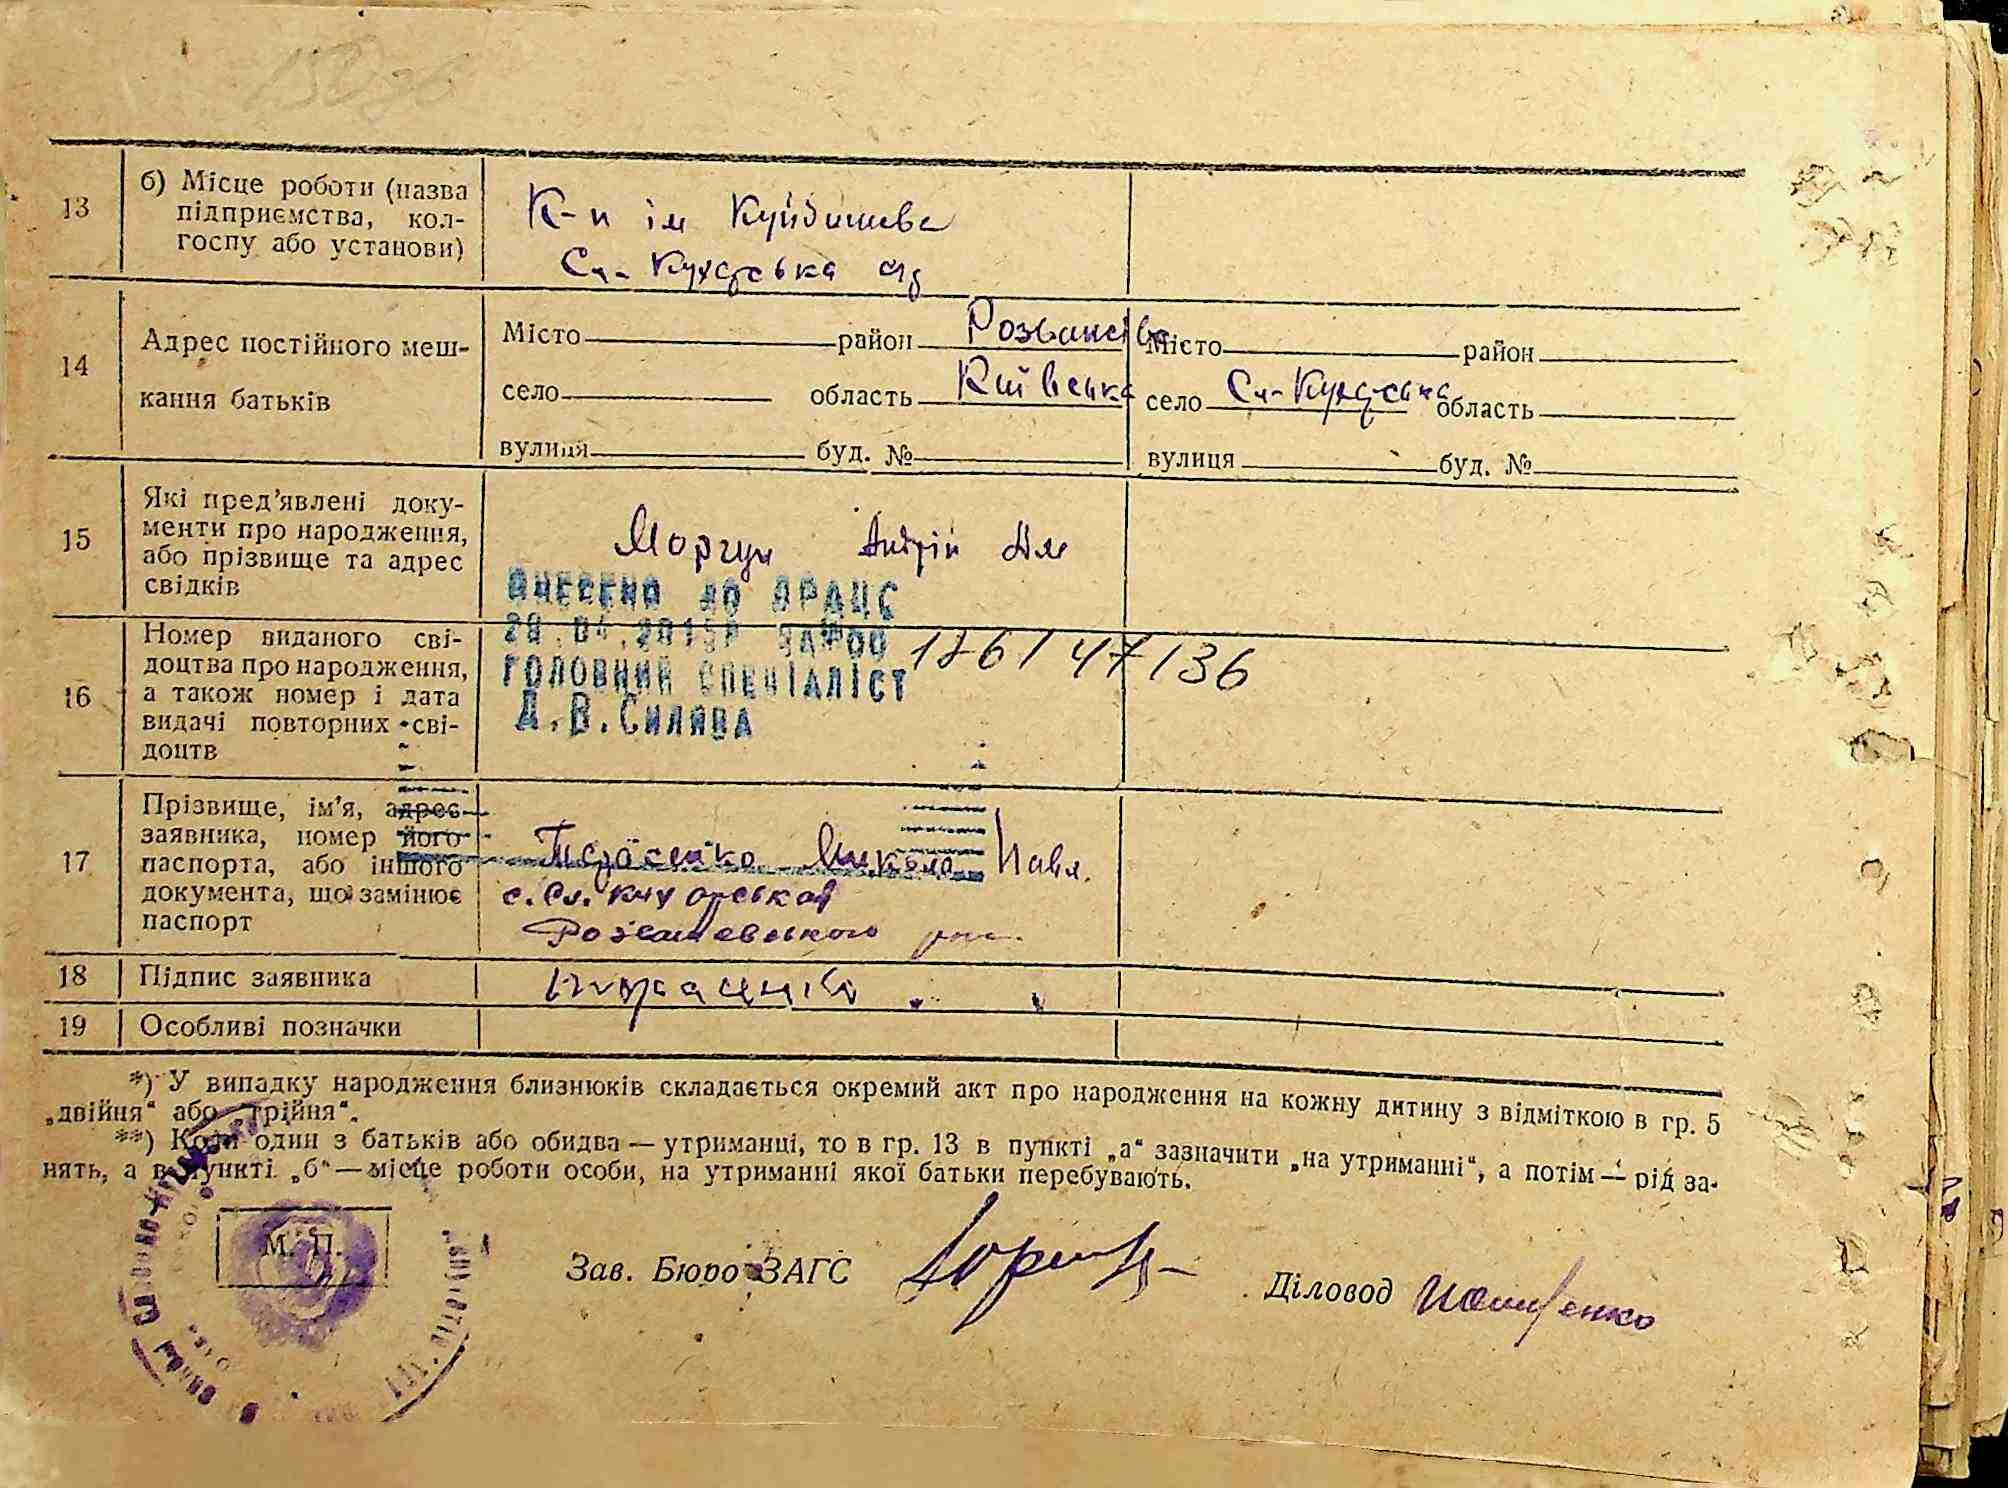 13 б) Місце роботи (назва
підприємства, кол-
госпу або установи)
К-п ім Куйбишева
Сл-Кухарська
14 Адрес постійного меш-
кання батьків
Місто район Розваисів
село область Київська
вулиця буд. №
Місто район
село Сл-Кухарська область
вулиця буд. №
15 Які пред’явлені доку-
менти про народження,
або прізвище та адрес
свідків
Моргун Андрій
ВНЕСЕНО ДО ДРАЦС
ГОЛОВНИЙ СПЕЦІАЛІСТ
Д.В.СИЛЯВА
16 Номер виданого сві-
доцтва про народження,
а також номер і дата
видачі повторних сві-
доцтв
176/47/36
17 Прізвище, ім’я, адрес
заявника, номер його
паспорта, або іншого
документа, що замінює
паспорт
Тарасенко Микола Павл.
с. Сл. Кухарська
18 Підпис заявника
19 Особливі позначки
*) У випадку народження близнюків складається окремий акт про народження на кожну дитину з відміткою в гр. 5
„двійня“ або „трійня“.
**) Коли один з батьків або обидва — утриманці, то в гр. 13 в пункті „а“ зазначити „на утриманні“, а потім — рід за-
нять, а в пункті „б“ — місце роботи особи, на утриманні якої батьки перебувають.
М. П.
Зав. Бюро ЗАГС
Діловод